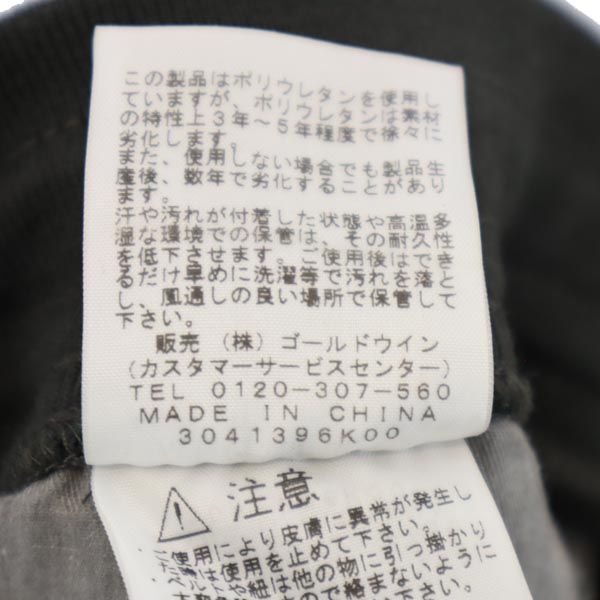 この製品はポリウレタンを使用し
ていますが、ポリウレタンは素材
の特性上3年～5年程度で徐々に
劣化します。
また、使用しない場合でも製品生
産後、数年で劣化することがあり
ます。
汗や汚れが付着した状態や高温多
湿な環境での保管は、その耐久性
を低下させます。ご使用後はでき
るだけ早めに洗濯等で汚れを落と
し、風通しの良い場所で保管して
下さい。
販売 (株) ゴールドウイン
(カスタマーサービスセンター)
TEL 0120-307-560
MADE IN CHINA
3041396K00
注意
使用により皮膚に異常が発生し
は使用を止めて下さい。
紐は他の物に引っ掛かり
ので絡まないように